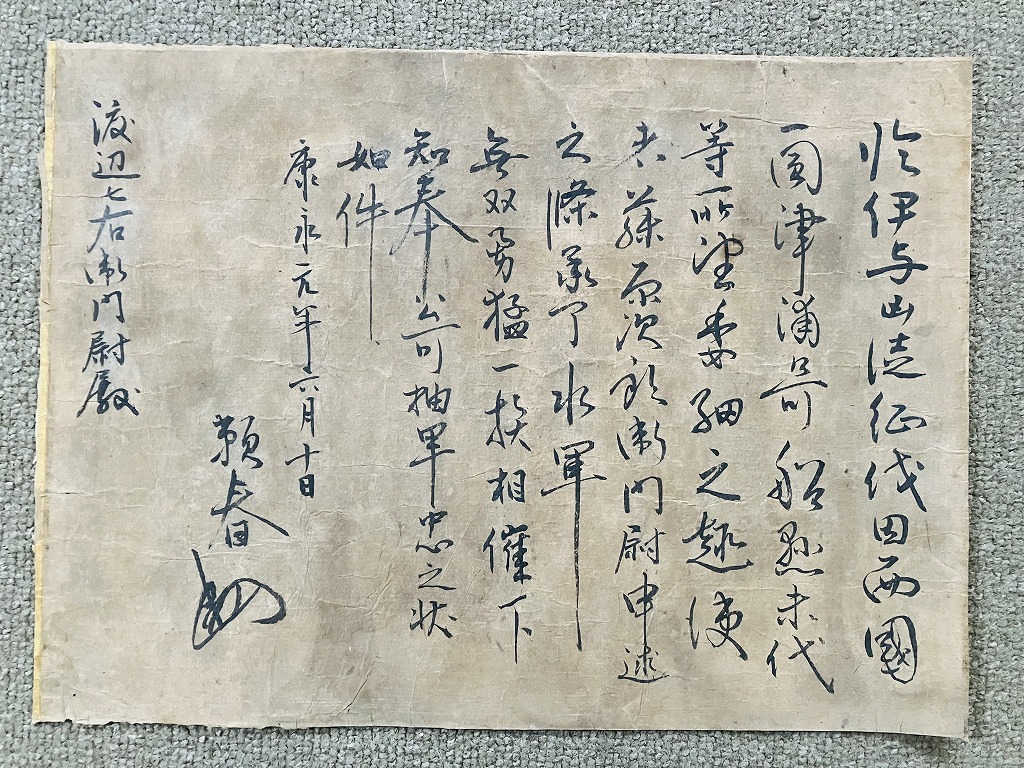 伊与凶徒征伐因西國
一圓津浦之可船懸未代
等所望委細之趣使
者藤原次郎衛門尉申述
之條承了水軍
無双勇猛一族相催下
知奉公可抽軍忠之状
如件
康永元年六月十日
頼春
渡辺七右衛門尉殿